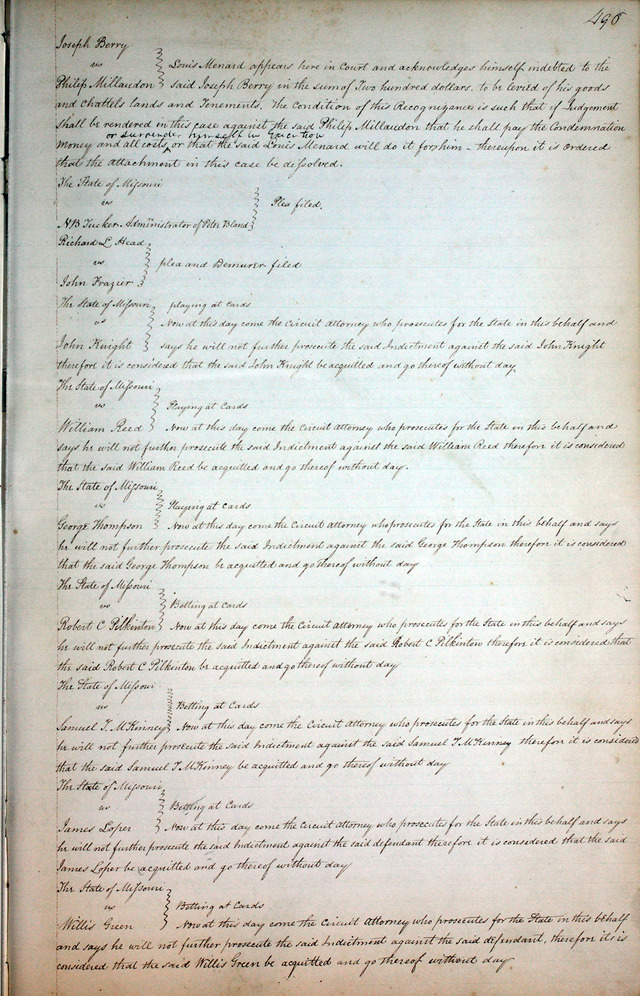 496
Joseph Berry
vs Louis Menard appears here in Court and acknowledges himself indebted to the
Philip Millaudon said Joseph Berry in the sum of Two hundred dollars. to be levied of his goods
and chattels lands and Tenements. The Condition of this Recognizance is such that if Judgement
shall be rendered in this case against the said Philip Millaudon that he shall pay the Condemnation
or Surrender himself in Execution
money and all costs, or that the said Louis Menard will do it for him - thereupon it is ordered
that the attachment in this case be dissolved.
The State of Missouri
vs Plea filed.
N B Tucker Administrator of Peter Bland
Richard L Head
vs plea and Demurer filed
John Frazier
The State of Missouri playing at cards
vs Now at this day come the Circuit Attorney who prosecutes for the State in this behalf and
John Knight says he will not further prosecute the said Indictment against the said John Knight
therefore it is considered that the said John Knight be acquitted and go thereof without day
The State of Missouri
vs Playing at Cards
William Reed Now at this day come the Circuit Attorney who prosecutes for the State in this behalf and
says he will not further prosecute the said Indictment against the said William Reed therefore it is considered
that the said William Reed be acquitted and go thereof without day.
The State of Missouri
vs Playing at Cards
George Thompson Now at this day come the Circuit Attorney who prosecutes for the State in this behalf and says
he will not further prosecute the said Indictment against the said George Thompson therefore it is considered
that the said George Thompson be acquitted and go thereof without day
The State of Missouri
vs Betting at Cards
Robert C Pilkinton Now at this day come the Circuit Attorney who prosecutes for the State in this behalf and says
he will not further prosecute the said Indictment against the said Robert C Pilkinton therefore it is considered that
the said Robert C Pilkinton be acquitted and go thereof without day
The State of Missouri
vs Betting at Cards
Samuel T. McKinney Now at this day come the Circuit Attorney who prosecutes for the State in this behalf and says
he will not further prosecute the said Indictment against the said Samuel T McKenney therefore it is considered
that the said Samuel T McKinney be acquitted and go thereof without day
The State of Missouri
vs Betting at Cards
James Loper Now at this day come the Circuit Attorney who prosecutes for the State in this behalf and says
he will not further prosecute the said Indictment against the said defendant therefore it is considered that the said
James Loper be acquitted and go thereof without day
The State of Missouri
vs Betting at Cards
Willis Green Now at this day come the Circuit Attorney who prosecutes for the State in this behalf
and says he will not further prosecute the said Indictment against the said defendant, therefore it is
considered that the said Willis Green be acquitted and go thereof without day